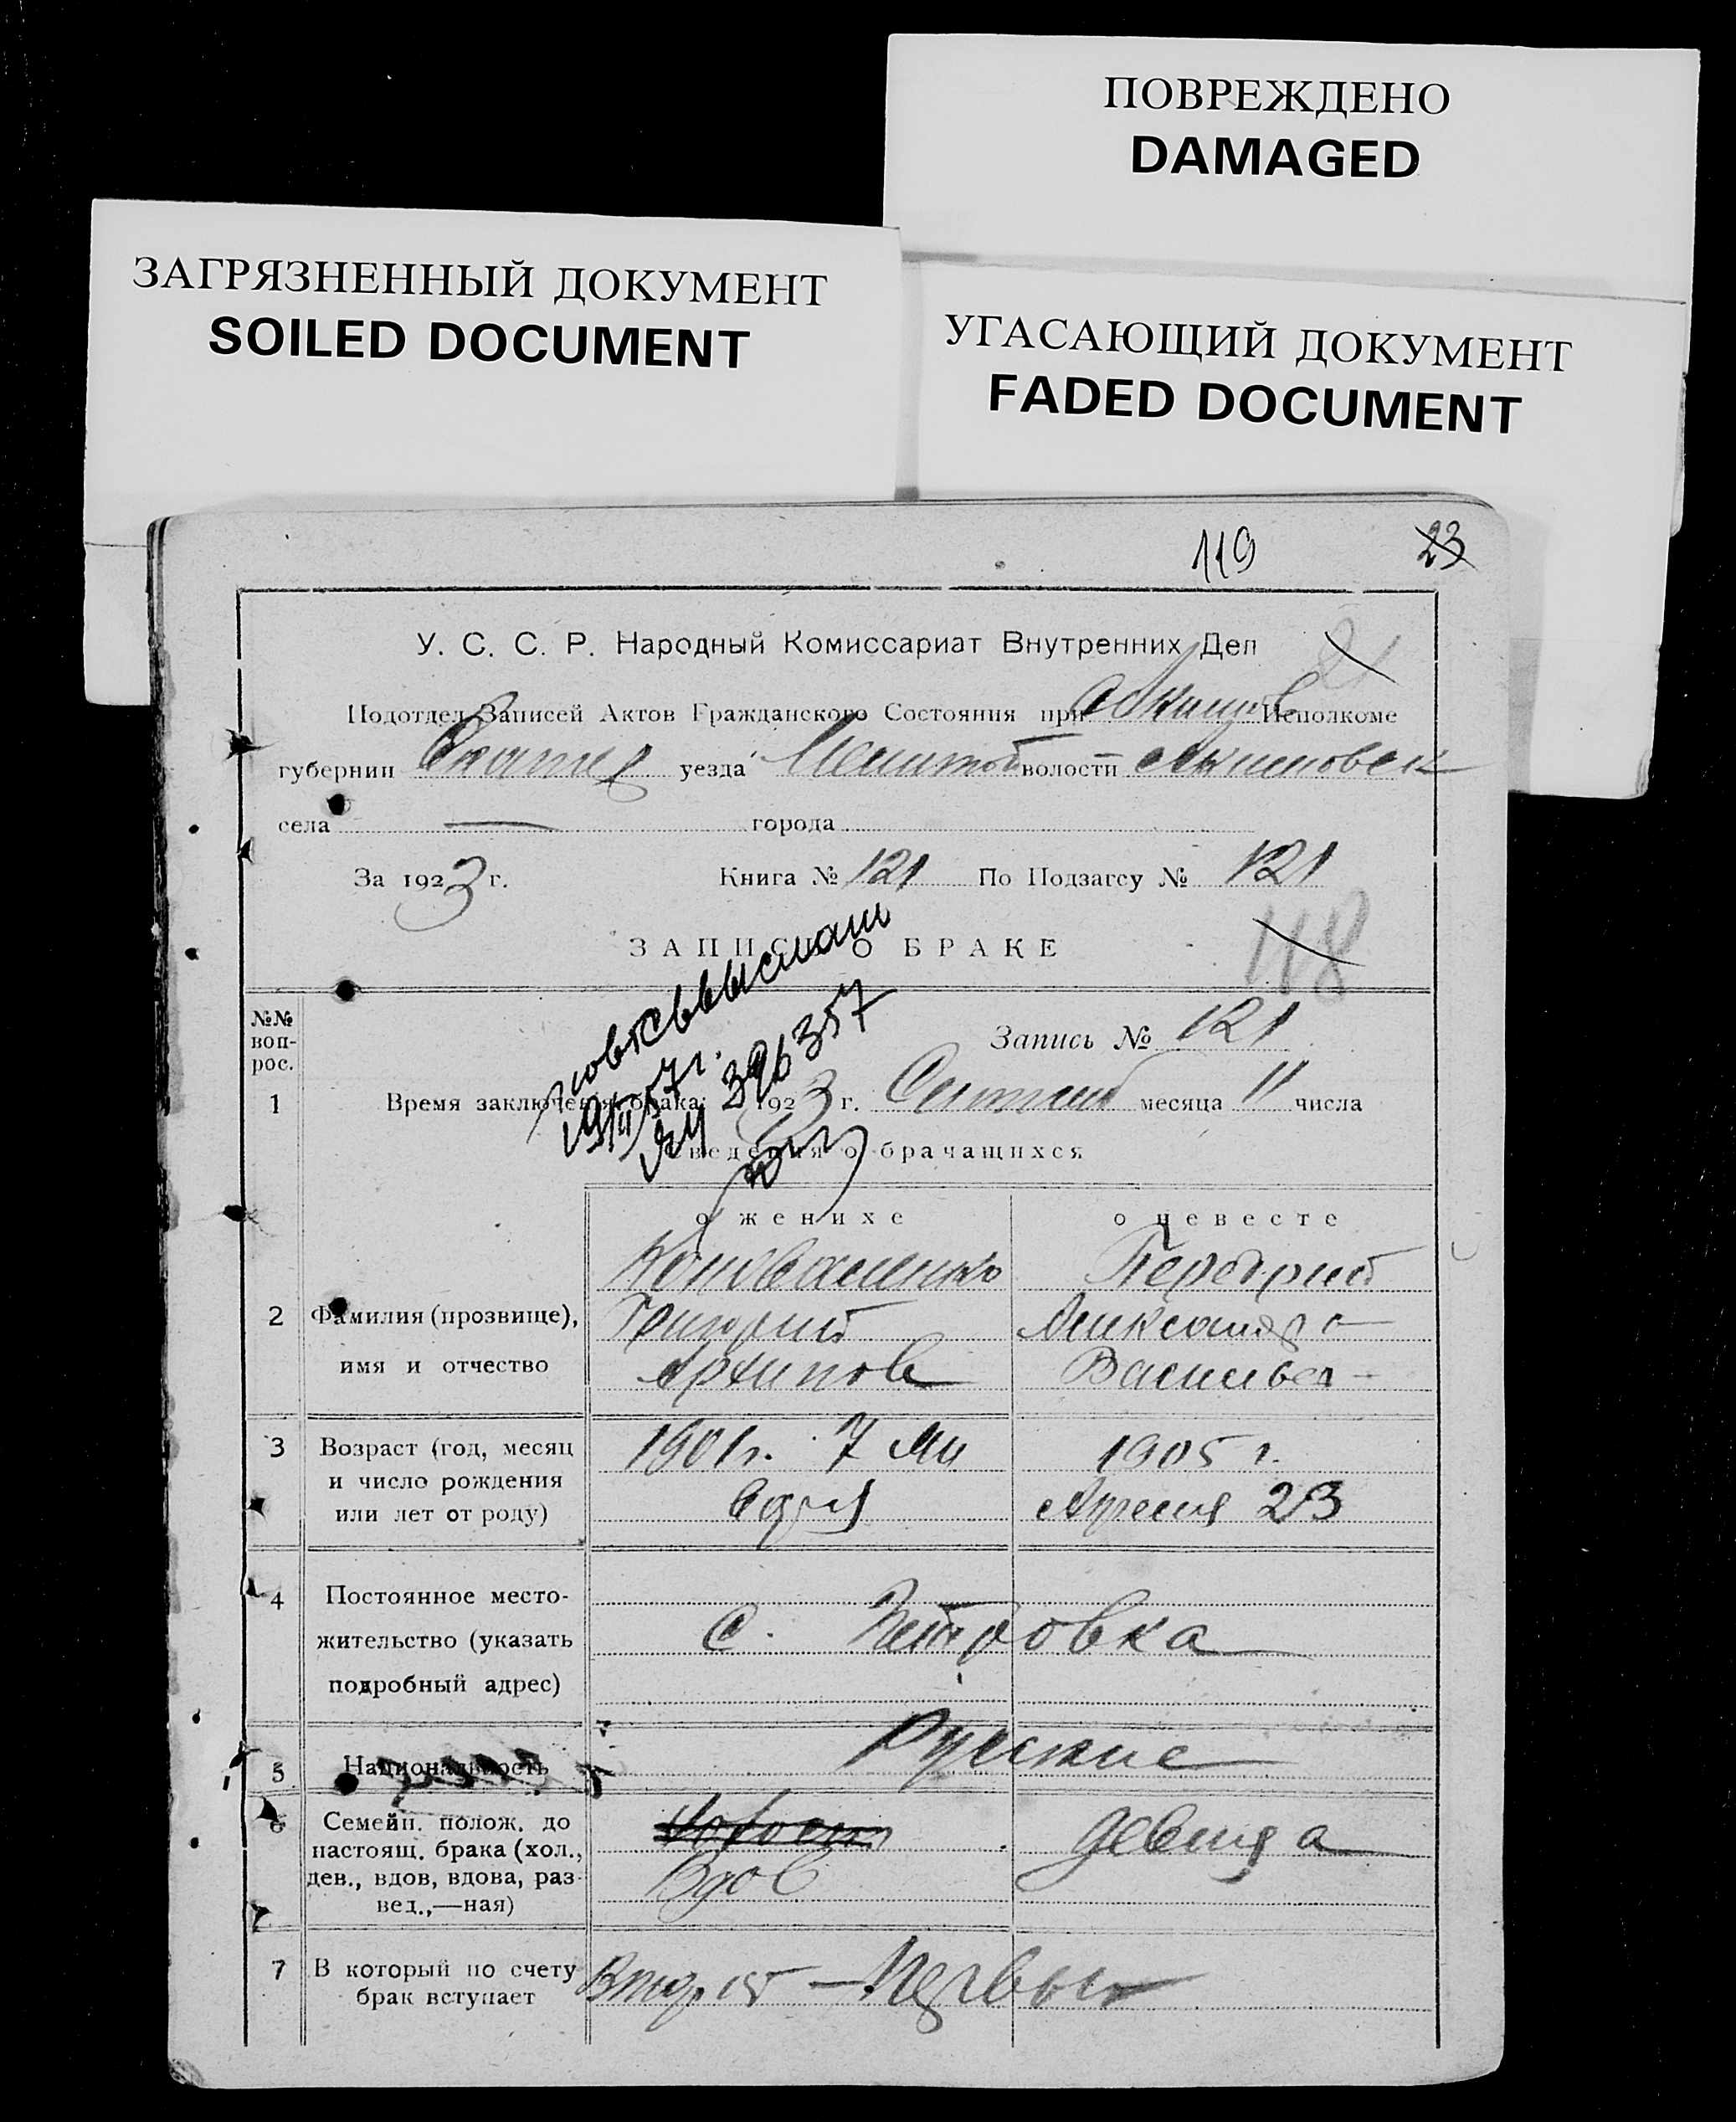 ПОВРЕЖДЕНО
DAMAGED
ЗАГРЯЗНЕННЫЙ ДОКУМЕНТ
SOILED DOCUMENT
УГАСАЮЩИЙ ДОКУМЕНТ
FADED DOCUMENT
119 23
У. С. С. Р. Народный Комиссариат Внутренних Дел
Подотдел Записей Актов Гражданского Состояния при Исполкоме
губернии уезда Мелитоп волости Акимовск
села — города
За 1923 г. Книга № 121 По Подзагсу № 121
ЗАПИСЬ О БРАКЕ 118
№№ воп-рос.
Запись № 121
396357
1 Время заключения брака: 1923 г. месяца 11 числа
Сведения о брачащихся
о женихе о невесте
Коноваленко
2 Фамилия (прозвище), Григорий Александра
имя и отчество Архипов Васильев
3 Возраст (год, месяц 1901г. 7 1905 г.
и число рождения
или лет от роду) Апреля 23
4 Постоянное место-
жительство (указать с. Петровка
подробный адрес)
5 Национальность Русские
6 Семейн. полож. до Холост девица
настоящ. брака (хол.,
дев., вдов, вдова, раз- Вдов
вед.,—ная)
7 В который по счету Второй — Первый
брак вступает